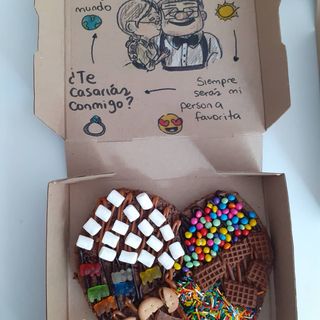 mundo
¿Te
casarías
conmigo?
Siempre
serás mi
persona
favorita